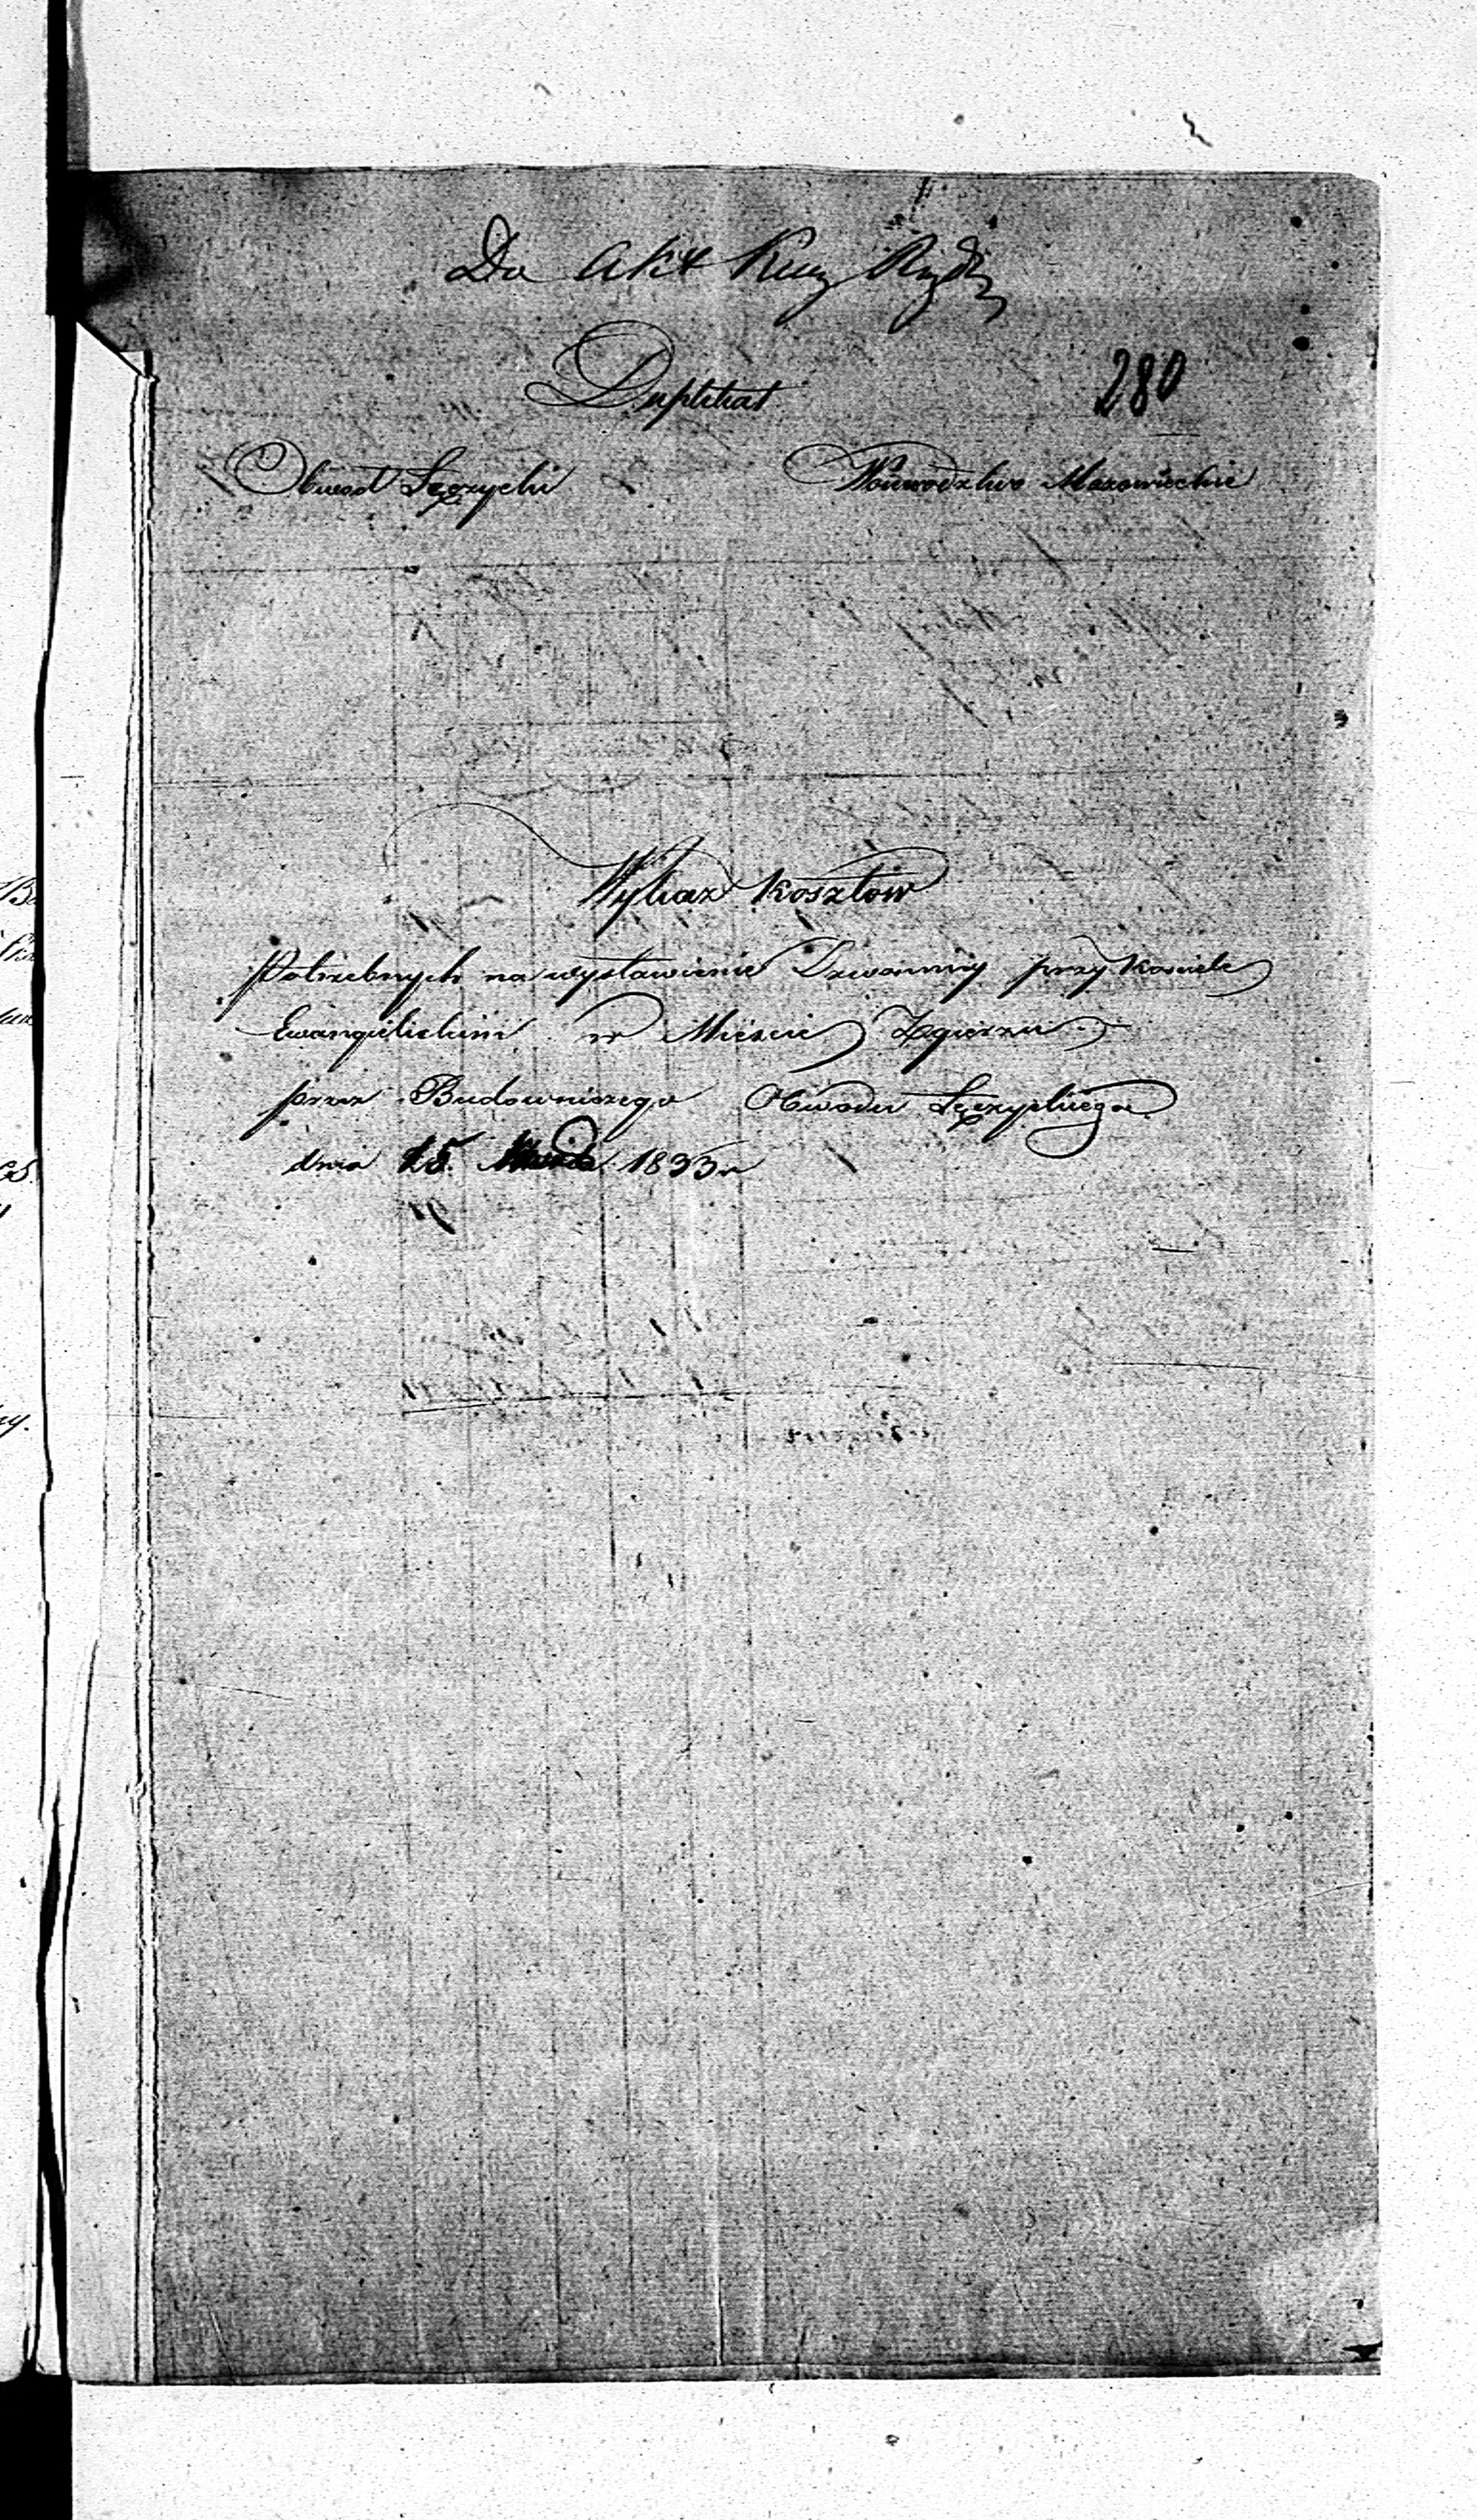 Do Akt Kom Rząd
Duplikat
280
Obwod Łęczycki Woiewodztwo Mazowieckie
Wykaz Kosztow
Potrzebnych na wystawienie Dzwonnicy przy Kosciele
Ewangelickim w Miescie Zgierzu
przez Budowniczego Obwodu Łęczyckiego
dnia 15 1833 r